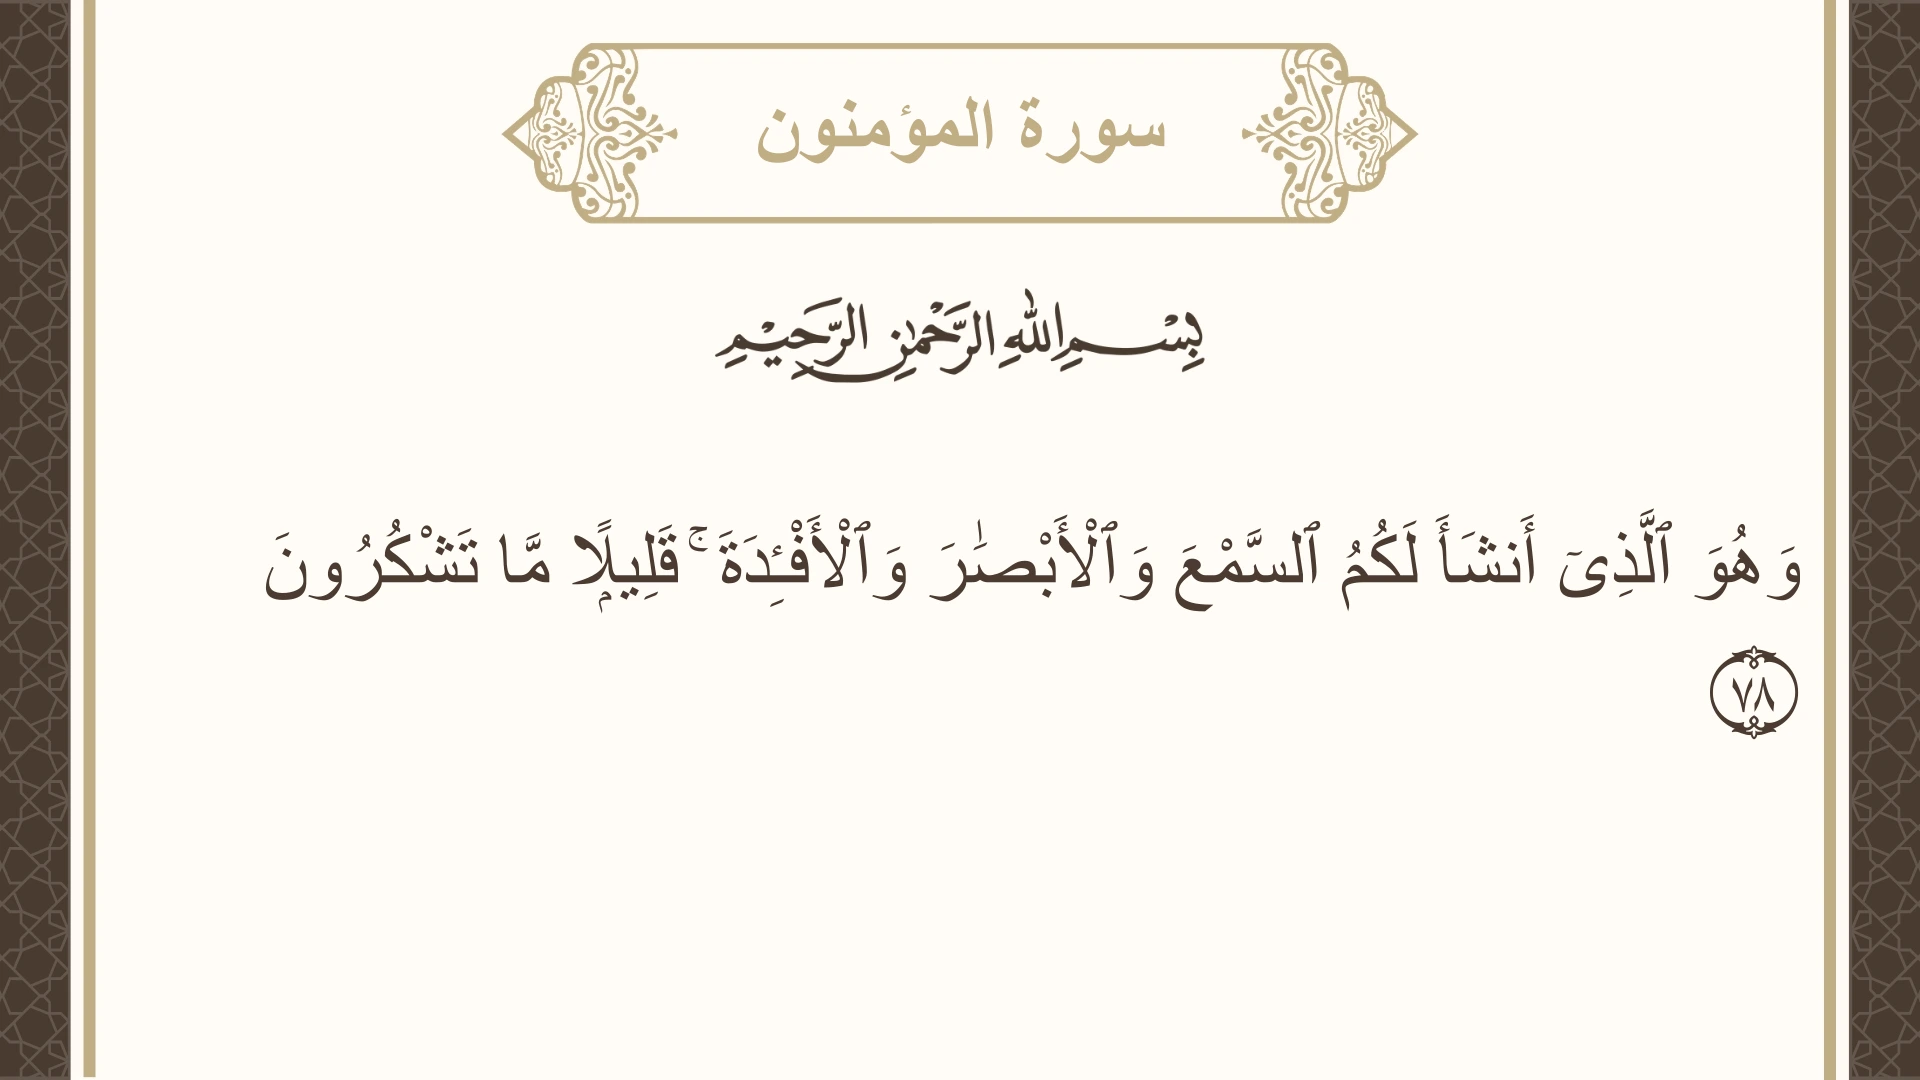 سورة المؤمنون
بِسْمِ اللهِ الرَّحْمٰنِ الرَّحِيْمِ
وَهُوَ ٱلَّذِىٓ أَنشَأَ لَكُمُ ٱلسَّمْعَ وَٱلْأَبْصَـٰرَ وَٱلْأَفْـِٔدَةَ ۚ قَلِيلًۭا مَّا تَشْكُرُونَ
٧٨